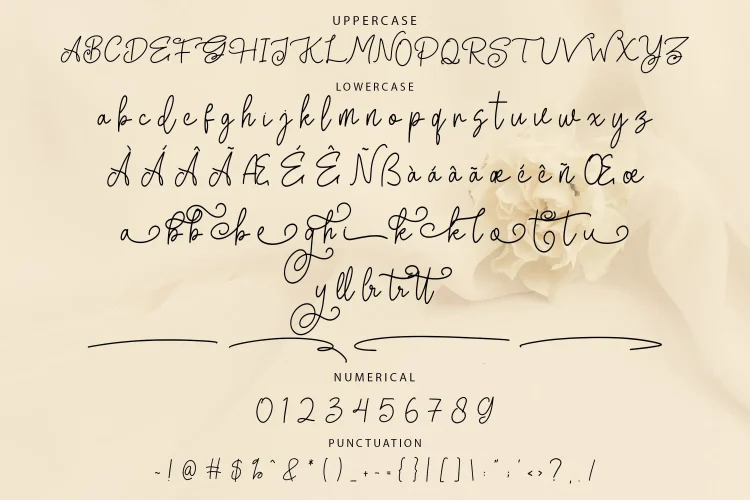 UPPERCASE
ABCDEFGHIJKLMNOPQRSTUVWXYZ
LOWERCASE
a b c d e f g h i j k l m n o p q r s t u v w x y z
À Á Â Ã Æ É Ê Ñ ß à á â ã æ é ê ñ Œ œ
a bb ch e gh i k ck l o t t u
y ll br tr tt
NUMERICAL
0 1 2 3 4 5 6 7 8 9
PUNCTUATION
~ ! @ # $ % ^ & * ( ) _ + - = { } | [ ] \ : " ; ' < > ? , . /